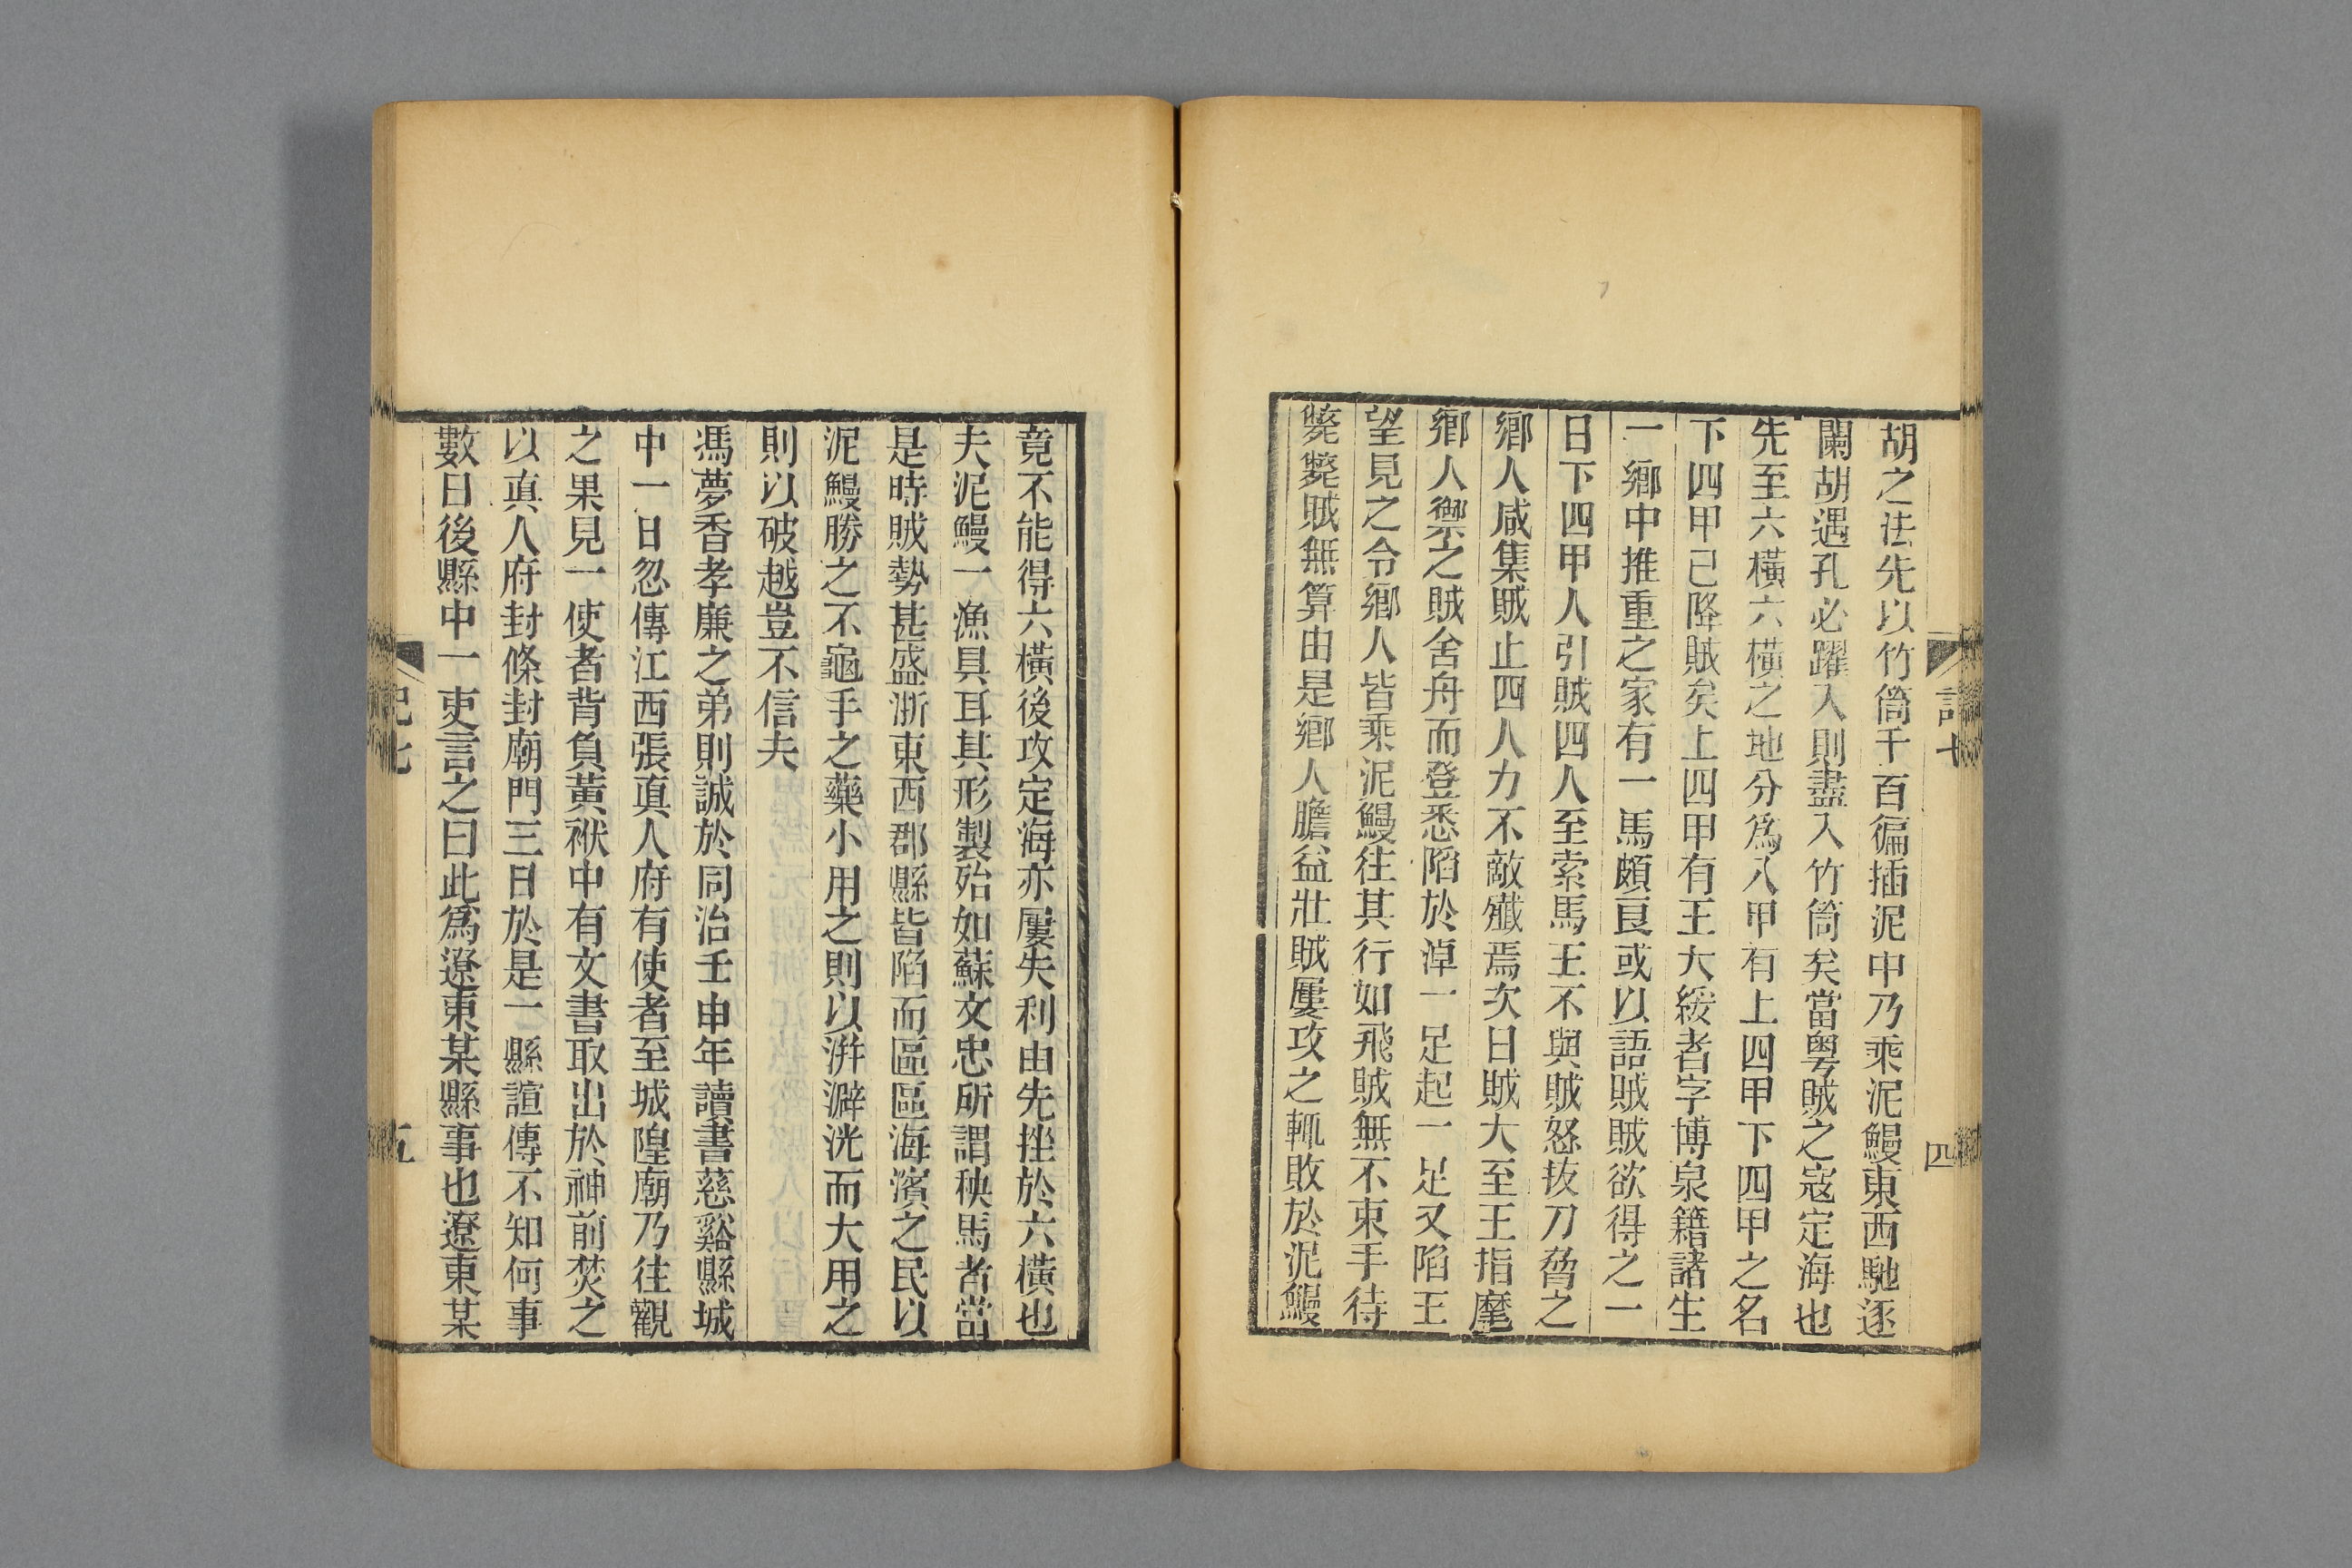 胡之法先以竹筒千百徧插泥中乃乘泥鰻東西馳逐
闌胡遇孔必躍入則盡入竹筒矣當粵賊之寇定海也
先至六橫六橫之地分爲八甲有上四甲下四甲之名
下四甲已降賊矣上四甲有王大綏者字博泉籍諸生
一鄉中推重之家有一馬頗良或以語賊賊欲得之一
日下四甲人引賊四人至索馬王不與賊怒拔刀脅之
鄉人咸集賊止四人力不敵殲焉次日賊大至王指麾
鄉人禦之賊舍舟而登悉陷於淖一足起一足又陷王
望見之令鄉人皆乘泥鰻往其行如飛賊無不束手待
斃斃賊無算由是鄉人膽益壯賊屢攻之輒敗於泥鰻
四
竟不能得六橫後攻定海亦屢失利由先挫於六橫也
夫泥鰻一漁具耳其形製殆如蘇文忠所謂秧馬者當
是時賊勢甚盛浙東西郡縣皆陷而區區海濱之民以
泥鰻勝之不龜手之藥小用之則以洴澼洸而大用之
則以破越豈不信夫
馮夢香孝廉之弟則誠於同治壬申年讀書慈谿縣城
中一日忽傳江西張真人府有使者至城隍廟乃往觀
之果見一使者背負黃袱中有文書取出於神前焚之
以真人府封條封廟門三日於是一縣諠傳不知何事
數日後縣中一吏言之曰此爲遼東某縣事也遼東某
五